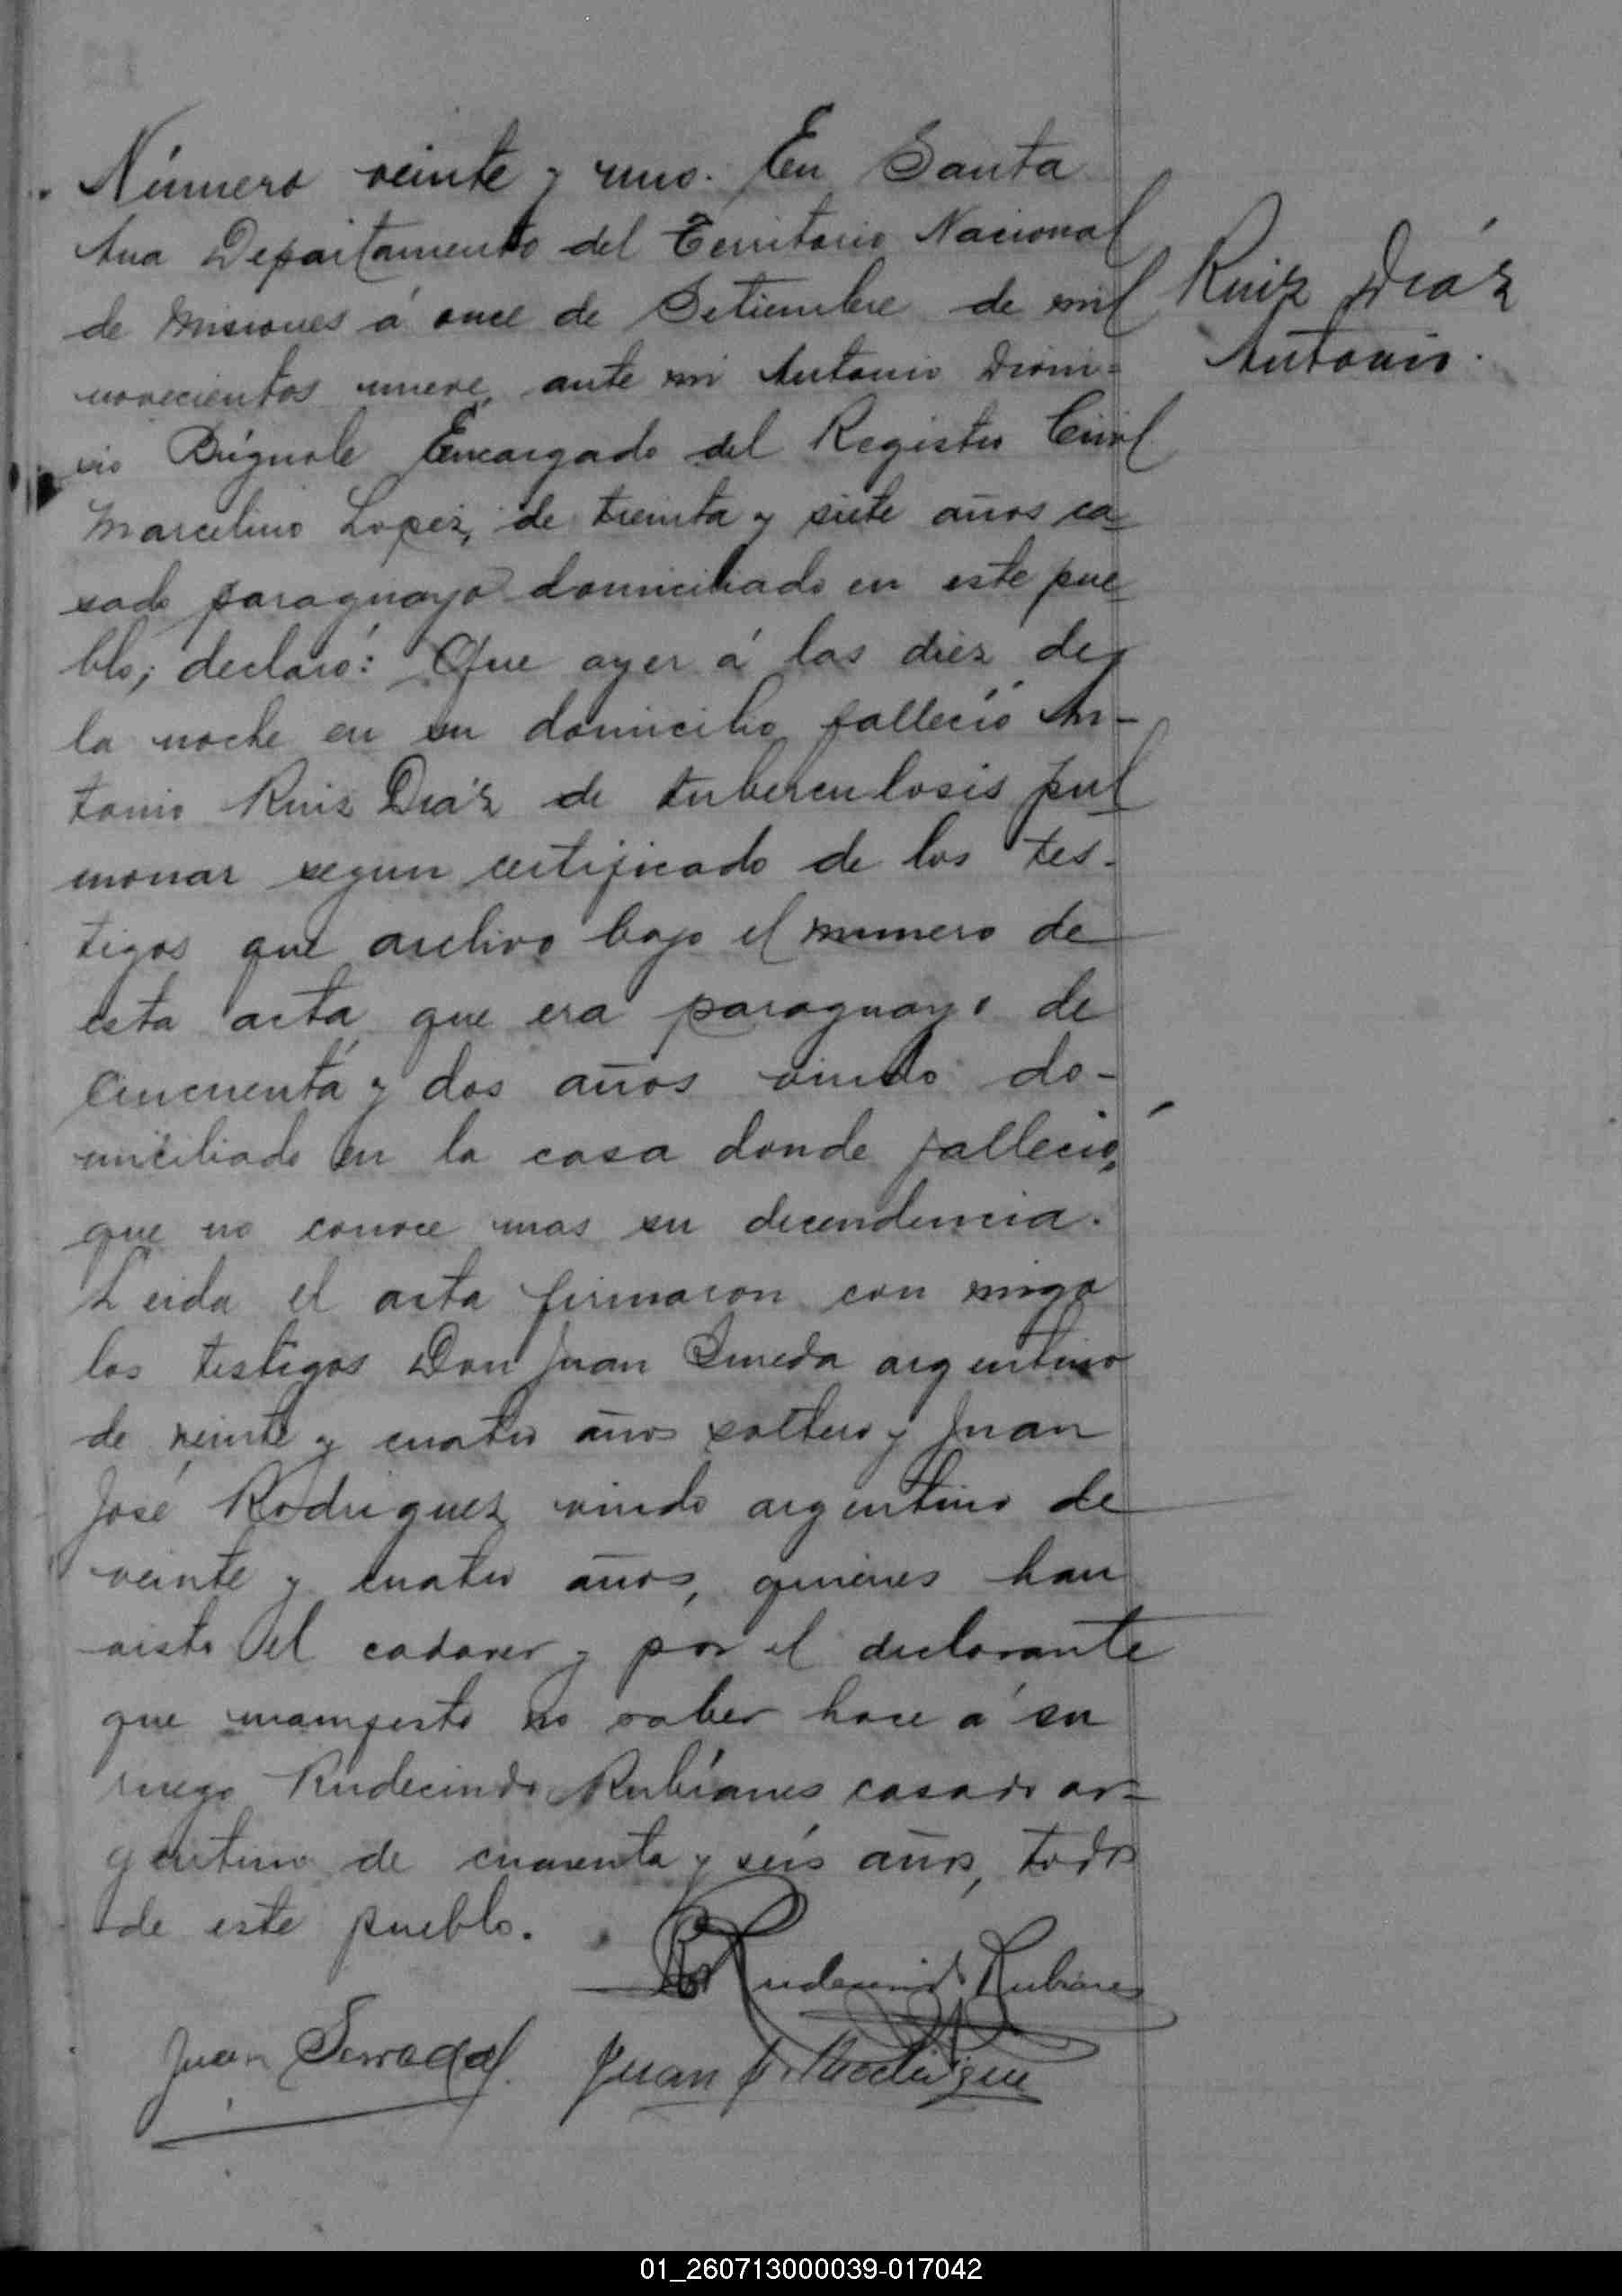 Número veinte y uno. En Santa
Ana Departamento del Territorio Nacional
de Misiones á once de Setiembre de mil
novecientos nueve, ante mi Antonio Dioni=
cio Brignole Encargado del Registro Civil
Marcelino Lopez, de treinta y siete años ca=
sado paraguayo domiciliado en este pue=
blo; declaró: Que ayer á las diez de
la noche en su domicilio falleció An-
tonio Ruiz Diáz de tuberculosis pul
monar segun certificado de los tes-
tigos que archivo bajo el numero de
esta acta, que era paraguayo de
cincuenta y dos años viudo do-
miciliado en la casa donde falleció,
que no conoce mas su decendencia.
Leida el acta firmaron con migo
los testigos Don Juan argentino
de veinte y cuatro años soltero y Juan
José Rodriguez viudo argentino de
veinte y cuatro años, quienes han
visto el cadaver y por el declarante
que manifesto no saber hace á su
ruego Rudecindo Rubianes casado ar=
gentino de cuarenta y seis años, todos
de este pueblo.
Rudecindo Rubianes
Juan Juan J. Rodrigue
Ruiz Diáz
Antonio.
01_260713000039-017042